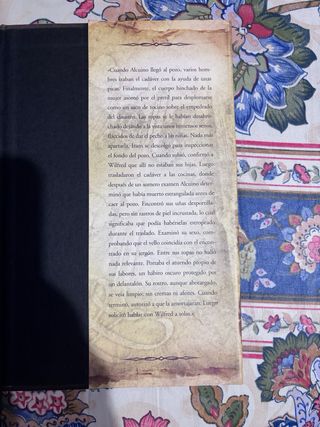 «Cuando Alcuino llegó al pozo, varios hom-
bres izaban el cadáver con la ayuda de unas
picas. Finalmente, el cuerpo hinchado de la
mujer asomó por el pretil para desplomarse
como un saco de tocino sobre el empedrado
del claustro. Las ropas se le habían desabro-
chado dejando a la vista unos inmensos senos
flácidos de dar el pecho a las niñas. Nada más
apartarla, Izam se descolgó para inspeccionar
el fondo del pozo. Cuando subió, confirmó a
Wilfred que allí no estaban sus hijas. Luego
trasladaron el cadáver a las cocinas, donde
después de un somero examen Alcuino deter-
minó que había muerto estrangulada antes de
caer al pozo. Encontró sus uñas desportilla-
das, pero sin rastros de piel incrustada, lo cual
significaba que podía habérselas estropeado
durante el traslado. Examinó su sexo, com-
probando que el vello coincidía con el encon-
trado en su jergón. Entre sus ropas no hubo
nada relevante. Portaba el atuendo propio de
sus labores, un hábito oscuro protegido por
un delantalón. Su rostro, aunque abotargado,
se veía limpio; sin cremas ni afeites. Cuando
terminó, autorizó a que la amortajaran. Luego
solicitó hablar con Wilfred a solas.»